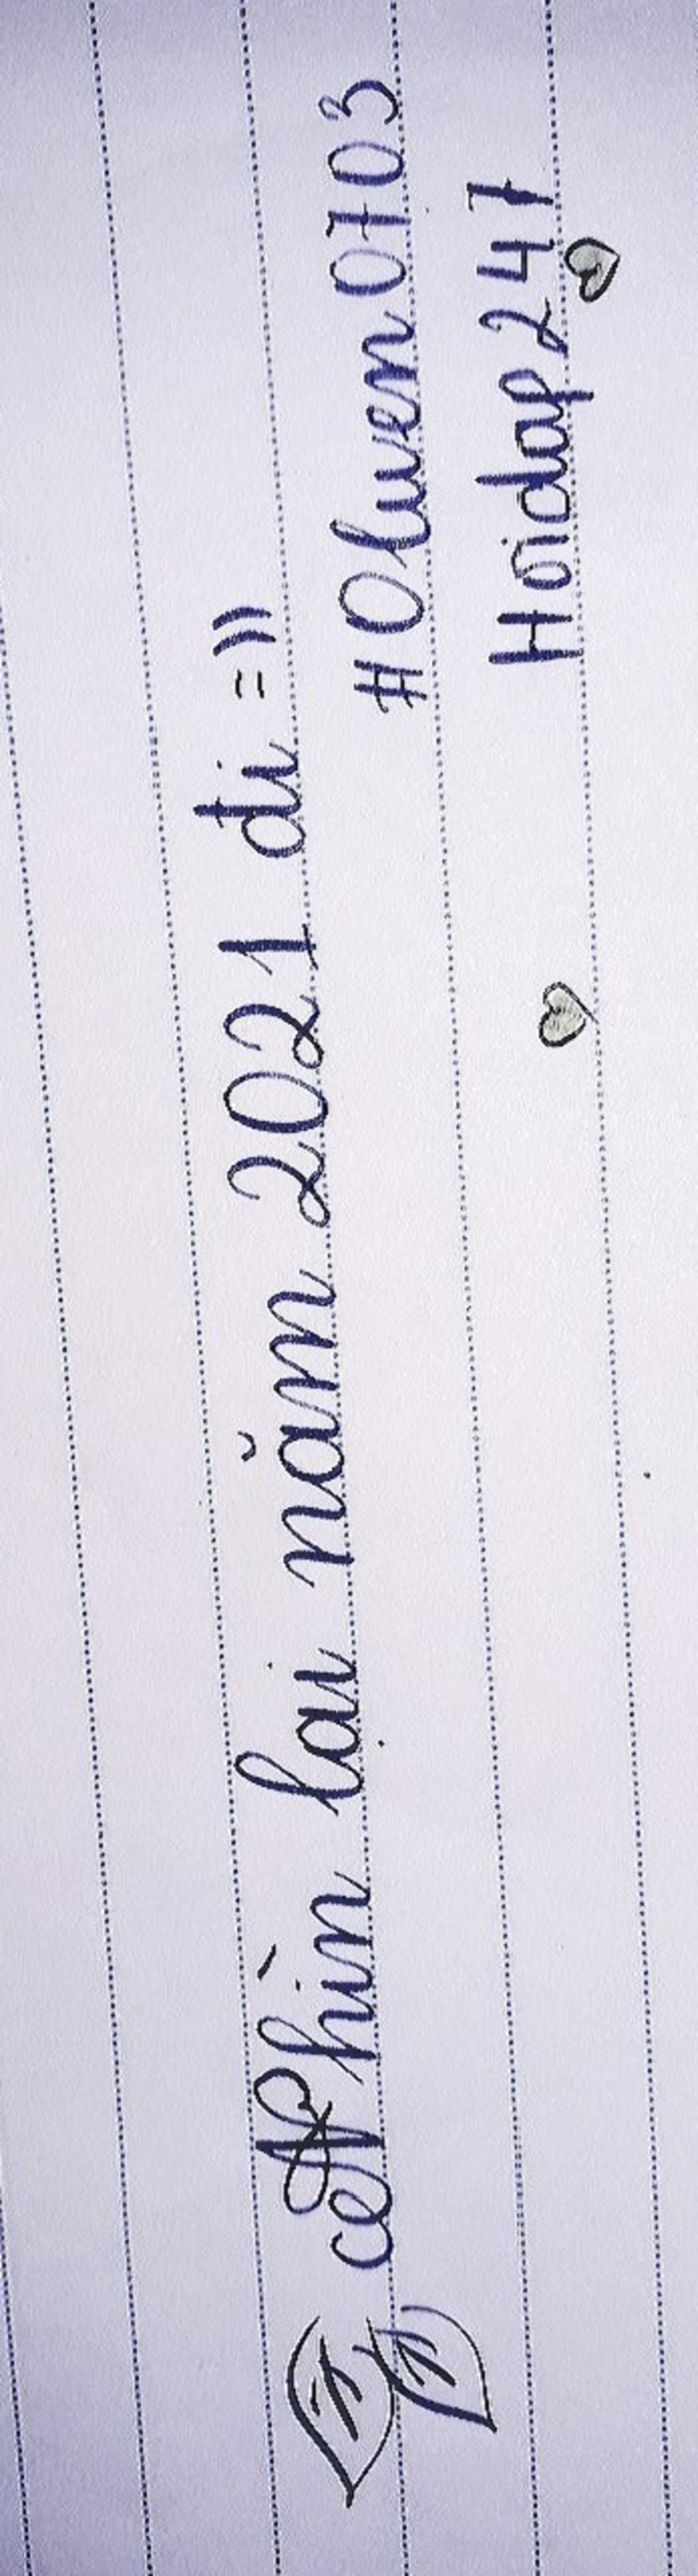 Nhìn lại năm 2021 đi =))
#Oluven0703
Hoidap247